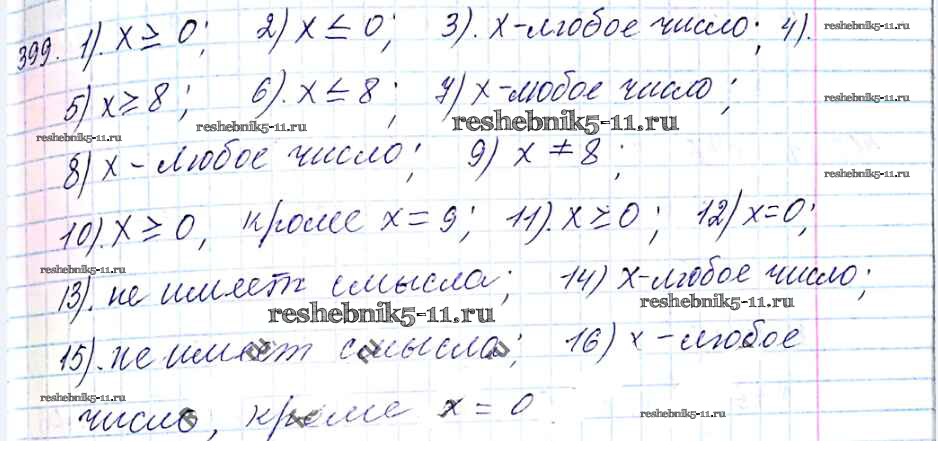 399. 1). x ≥ 0; 2) x ≤ 0; 3). x - любое число; 4).
reshebnik5-11.ru
5) x ≥ 8; 6). x ≤ 8; 7) x - любое число;
reshebnik5-11.ru
reshebnik5-11.ru reshebnik5-11.ru
reshebnik5-11.ru
8) x - любое число; 9) x ≠ 8;
reshebnik5-11.ru
10). x ≥ 0, кроме x = 9; 11). x ≥ 0; 12) x = 0;
reshebnik5-11.ru
13). не имеет смысла; 14) x - любое число;
reshebnik5-11.ru reshebnik5-11.ru
15). не имеет смысла; 16) x - любое
reshebnik5-11.ru reshebnik5-11.ru
число, кроме x = 0
reshebnik5-11.ru